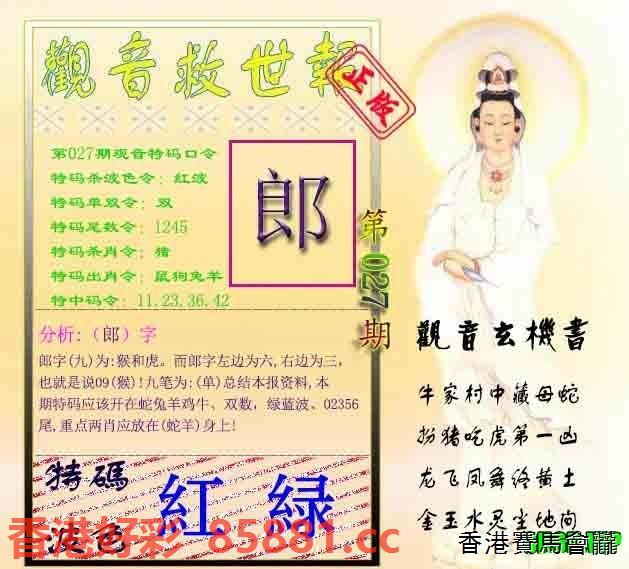 觀音救世報
正版
第027期观音特码口令
特码杀波色令：紅波
特码单双令：双
特码尾数令：1245
特码杀肖令：猪
特码出肖令：鼠狗兔羊
特中码令：11.23.36.42
郎
第027期
分析:（郎）字
郎字(九)为:猴和虎。而郎字左边为六,右边为三,
也就是说09(猴)!九笔为:(单)总结本报资料,本
期特码应该开在蛇兔羊鸡牛、双数，绿蓝波、02356
尾,重点两肖应放在(蛇羊)身上!
特碼
波色
紅 緑
觀音玄機書
牛家村中藏母蛇
扮猪吃虎第一凶
龙飞凤舞络黄土
金玉水灵坐地间
香港好彩 85881.cc
香港賽馬會